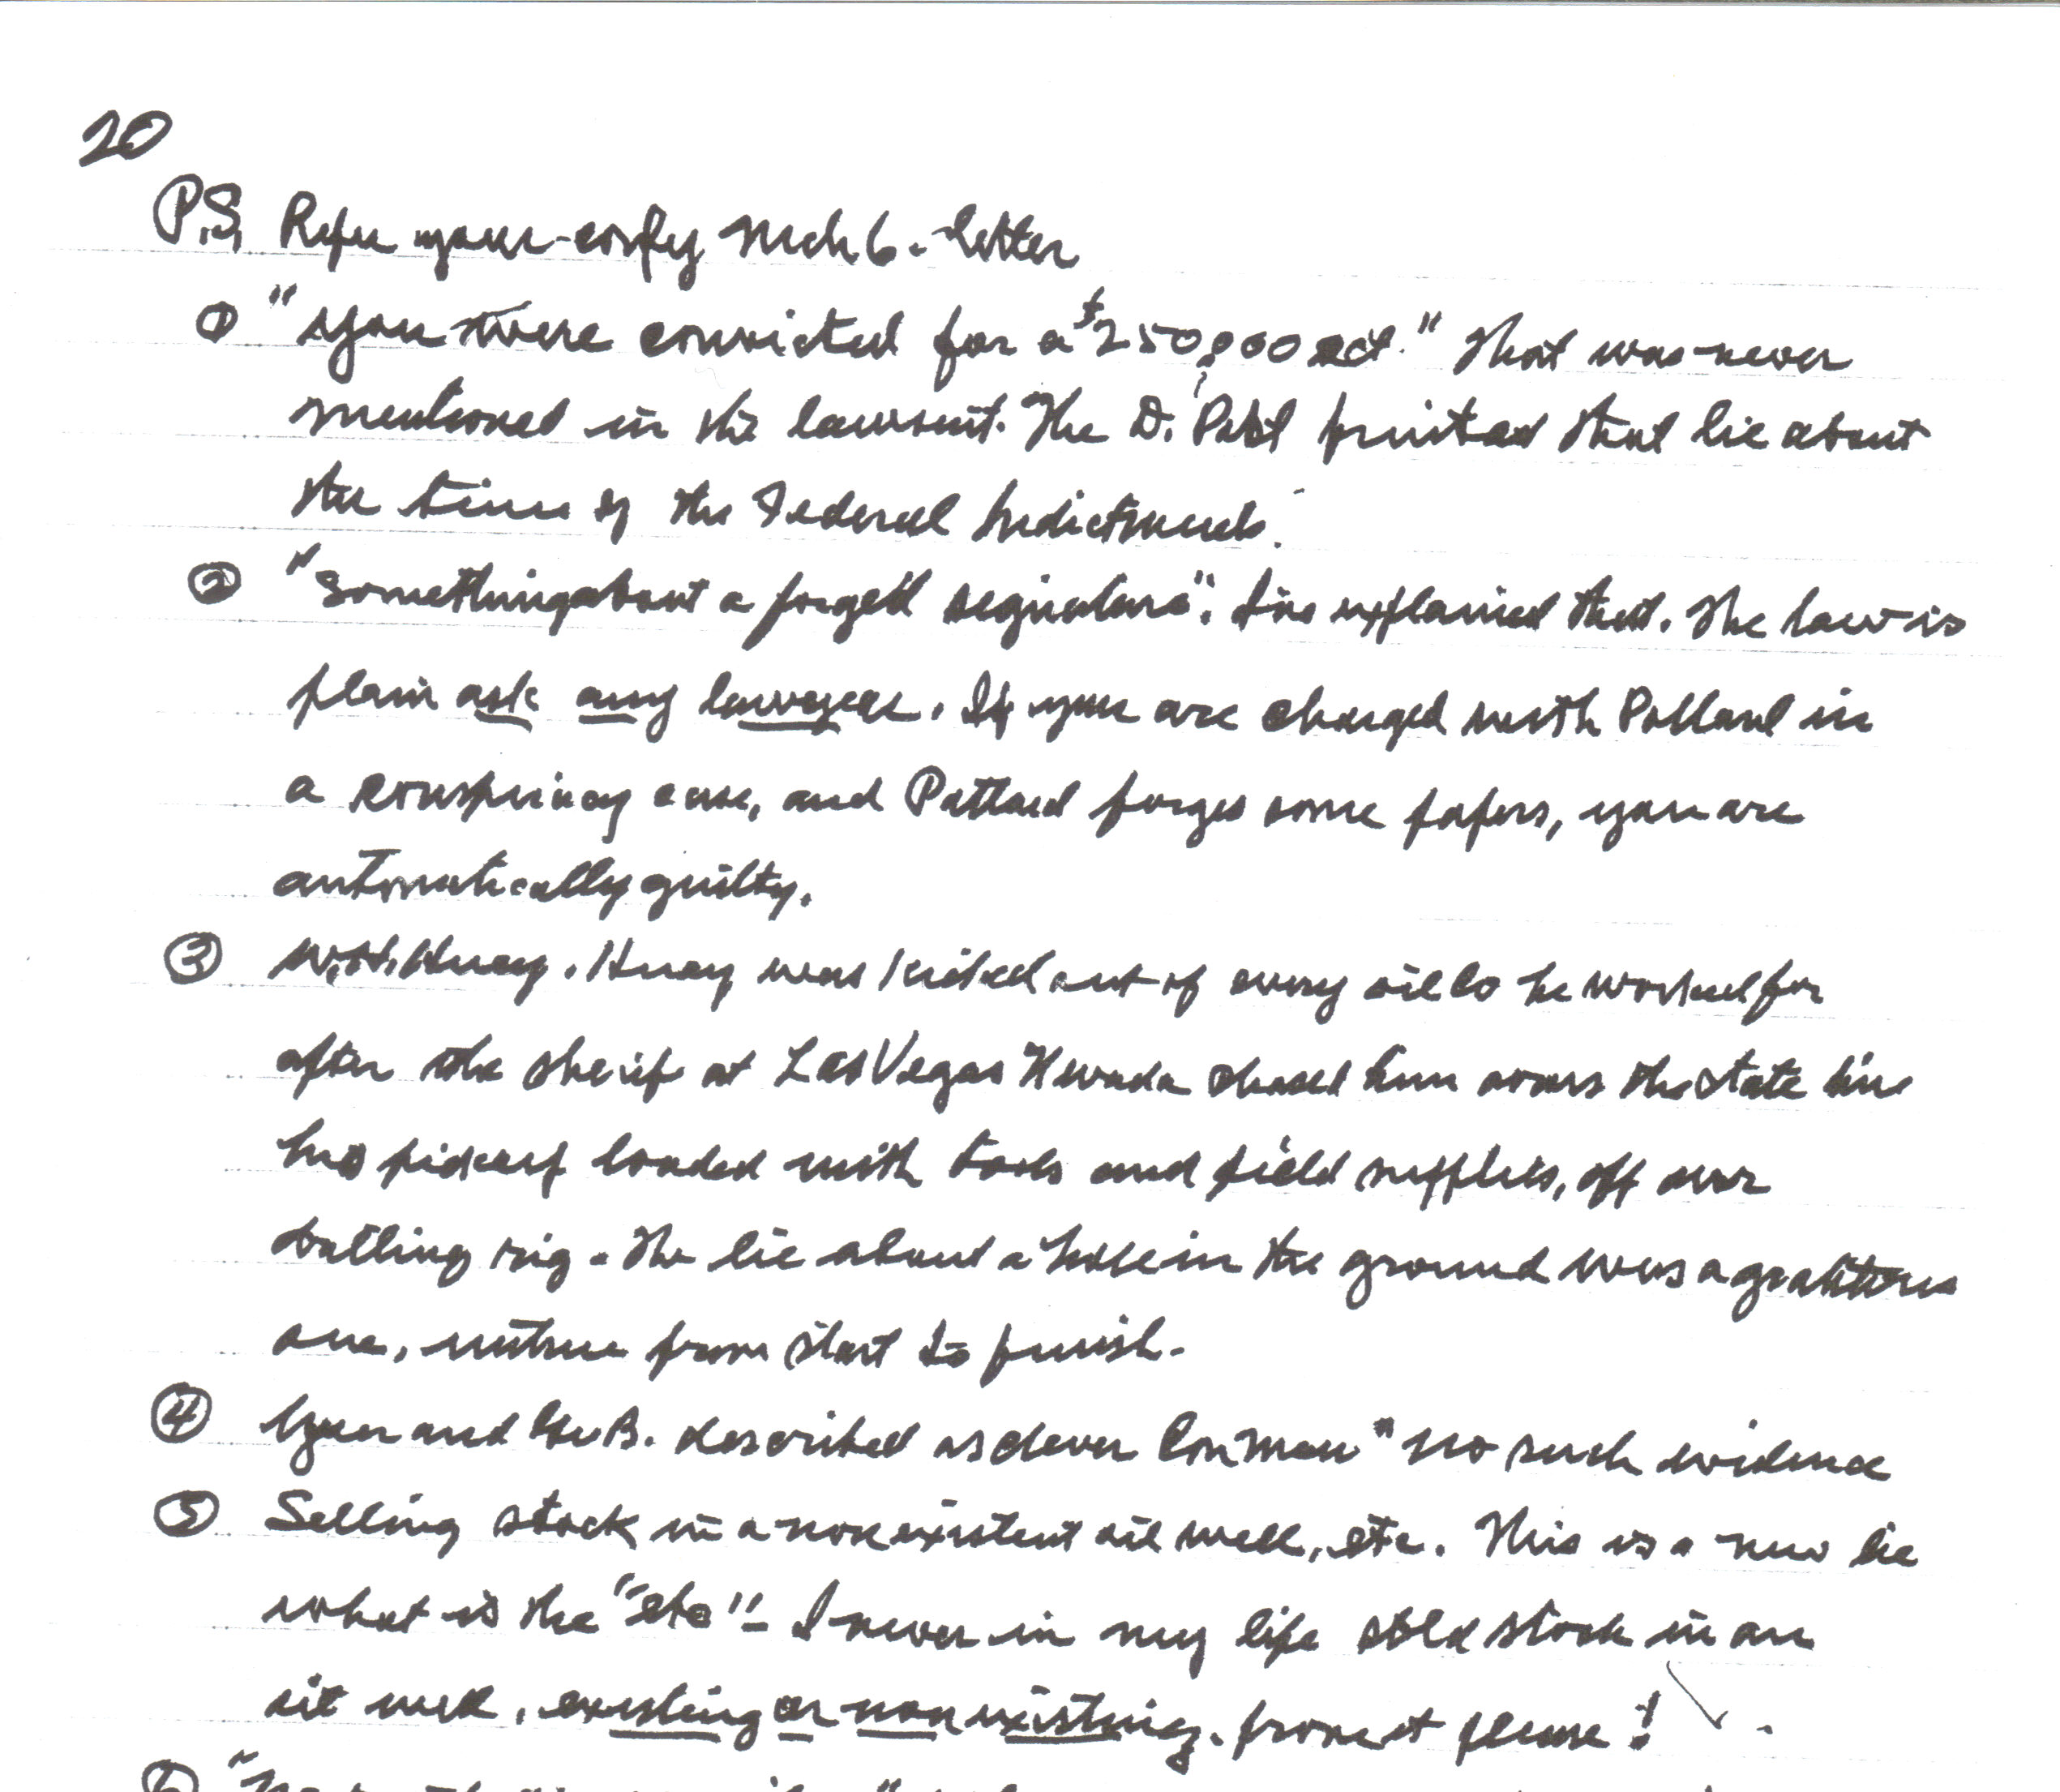 20
P.S. Refer your copy Mch 6. letter
① "you were convicted for a $250,000 act." That was never
mentioned in the lawsuit. The D. Post printed that lie about
the time of the Federal Indictment.
② "Something about a forged signature". I've explained that. The law is
plain ask any lawyer. If you are charged with Pollard in
a conspiracy case, and Pollard forges some papers, you are
automatically guilty.
③ W.H. Huey. Huey was kicked out of every oil Co he worked for
after the sherif at Las Vegas Nevada chased him across the state line
his pickup loaded with tools and field supplies, off our
drilling rig. The lie about a hole in the ground was a gratitous
one, untrue from start to finish.
④ and described as clever Con Men" no such evidence
⑤ Selling stock in a non existent oil well, etc. This is a new lie
what is the "etc" - I never in my life sold stock in an
oil well, existing or non existing. prove it please!
⑥ "